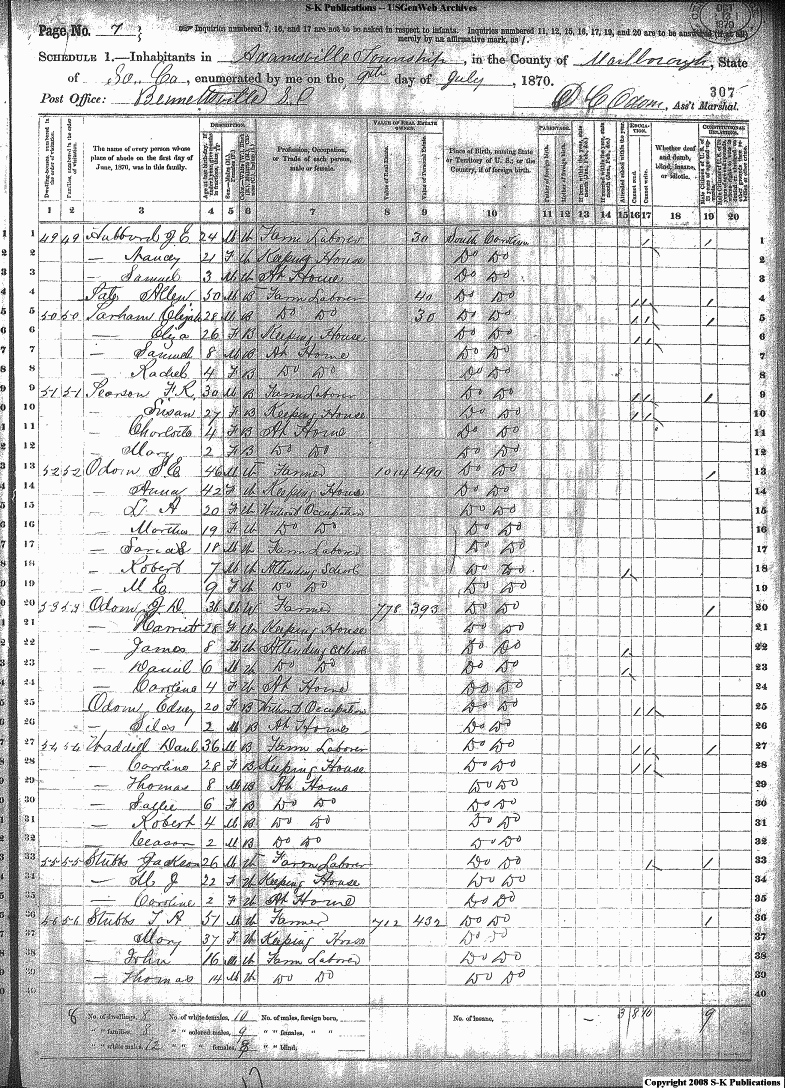 S-K Publications -- USGenWeb Archives
Page No. 7
Inquiries numbered 7, 16, and 17 are not to be asked in respect to infants. Inquiries numbered 11, 12, 15, 16, 17, 19, and 20 are to be answered (if at all)
merely by an affirmative mark, as /.
SCHEDULE 1.—Inhabitants in Adamsville Township, in the County of Marlborough, State
of So. Ca, enumerated by me on the 9th day of July, 1870.
307
Post Office: Bennettsville S.C D C Odom, Ass't Marshal.
The name of every person whose place of abode on the first day of June, 1870, was in this family.
DESCRIPTION.
Profession, Occupation, or Trade of each person, male or female.
VALUE OF REAL ESTATE OWNED.
Place of Birth, naming State or Territory of U. S.; or the Country, if of foreign birth.
PARENTAGE.
Whether deaf and dumb, blind, insane, or idiotic.
1 2 3 4 5 6 7 8 9 10 11 12 13 14 15 16 17 18 19 20
1 49 49 Hubbard J E 24 M W Farm Laborer 30 South Carolina / / 1
2 — Nancy 21 F W Keeping House Do Do 2
3 — Samuel 3 M W At Home Do Do 3
4 Allen 50 M B Farm Laborer 40 Do Do / / / 4
5 50 50 28 M B Do Do 30 Do Do / / / 5
6 — Eliza 26 F B Keeping House Do Do / / 6
7 — Samuel 8 M B At Home Do Do 7
8 — Rachel 4 F B Do Do Do Do 8
9 51 51 Pearson F. R. 30 M B Farm Laborer Do Do / / / 9
10 — Susan 27 F B Keeping House Do Do / / 10
11 Charlotte 4 F B At Home Do Do 11
12 — Mary 2 F B Do Do Do Do 12
13 52 52 Odom S. E. 46 M W Farmer 1014 490 Do Do / 13
14 — Anna 42 F W Keeping House Do Do 14
15 — 20 F W Without Occupation Do Do 15
16 — Martha 19 F W Do Do Do Do 16
17 — 18 M W Farm Laborer Do Do 17
18 — Robert 7 M W Attending School Do Do / 18
19 — M E 9 F W Do Do Do Do 19
20 53 53 Odom J D. 36 M W Farmer 778 393 Do Do / 20
21 — Harriet 28 F W Keeping House Do Do 21
22 — James 8 M W Attending School Do Do / 22
23 — Daniel 6 M W Do Do Do Do / 23
24 — Caroline 4 F W At Home Do Do 24
25 Odom Edney 20 F B Without Occupation Do Do / / 25
26 — Silas 2 M B At Home Do Do 26
27 54 54 Waddell Danl 36 M B Farm Laborer Do Do / / / 27
28 — Caroline 28 F B Keeping House Do Do / / 28
29 — Thomas 8 M B At Home Do Do 29
30 — Sallie 6 F B Do Do Do Do 30
31 — Robert 4 M B Do Do Do Do 31
32 — Ceason 2 M B Do Do Do Do 32
33 55 55 Stubbs Jackson 26 M W Farm Laborer Do Do / / 33
34 — M. J 22 F W Keeping House Do Do 34
35 — Caroline 2 F W At Home Do Do 35
36 56 56 Stubbs T A 51 M W Farmer 712 432 Do Do / 36
37 — Mary 37 F W Keeping House Do Do 37
38 — John 16 M W Farm Laborer Do Do 38
39 — Thomas 14 M W Do Do Do Do 39
40 40
8 No. of dwellings, 8 No. of white females, 10 No. of males, foreign born, No. of insane, 3 8 10 9
" " families, 8 " " colored males, 9 " " females, " "
" " white males, 12 " " " females, 8 " " blind,
Copyright 2008 S-K Publications